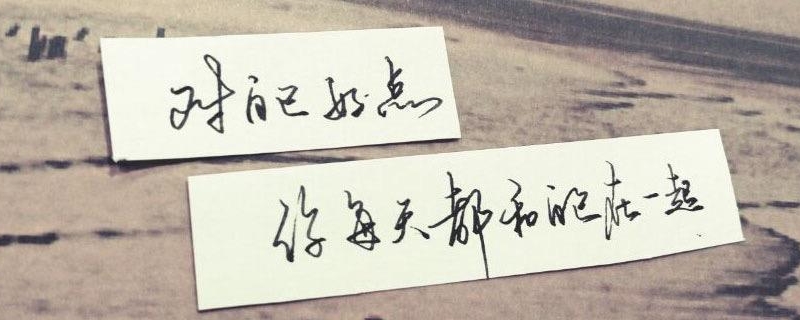 对自己好点
你每天都和自己在一起